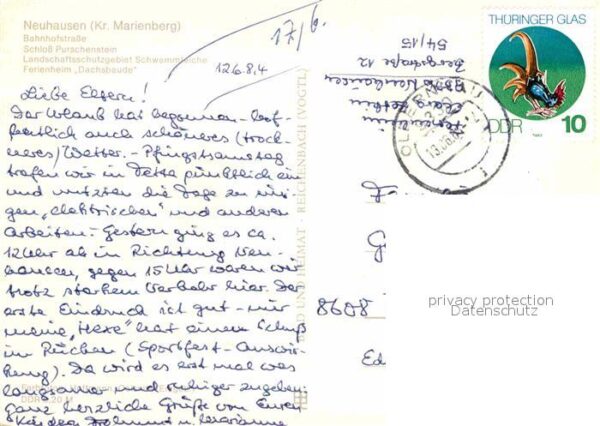 Neuhausen (Kr. Marienberg)
Bahnhofstraße
Schloß Purschenstein
Landschaftsschutzgebiet Schwemmteiche
Ferienheim „Dachsbaude"
17/6.
12.6.84
Liebe Eltern!
Der Urlaub hat begonnen - hof-
fentlich auch schöneres (trock-
neres) Wetter. - Pfingstsamstag
trafen wir in Tetta pünktlich ein
und nutzten die Tage zu eini-
gen „elektrischen" und anderen
Arbeiten. - Gestern ging es ca.
12 Uhr ab in Richtung Neu-
hausen, gegen 15 Uhr waren wir
trotz starkem Verkehr hier. Der
erste Eindruck ist gut - nur
meine „Hexe" hat einen Schuß
im Rücken (Sportfest - Auswir-
kung). Da wird es erst mal was
langsamer und ruhiger zugehen.
Ganz herzliche Grüße von Euren
Kindern und Marianne
BILD UND HEIMAT REICHENBACH (VOGTL)
DDR 0,20 M
Bergstraße 12
54/15
THÜRINGER GLAS
DDR
10
OLBERNHAU
13.06.84
8608
privacy protection
Datenschutz
Ed